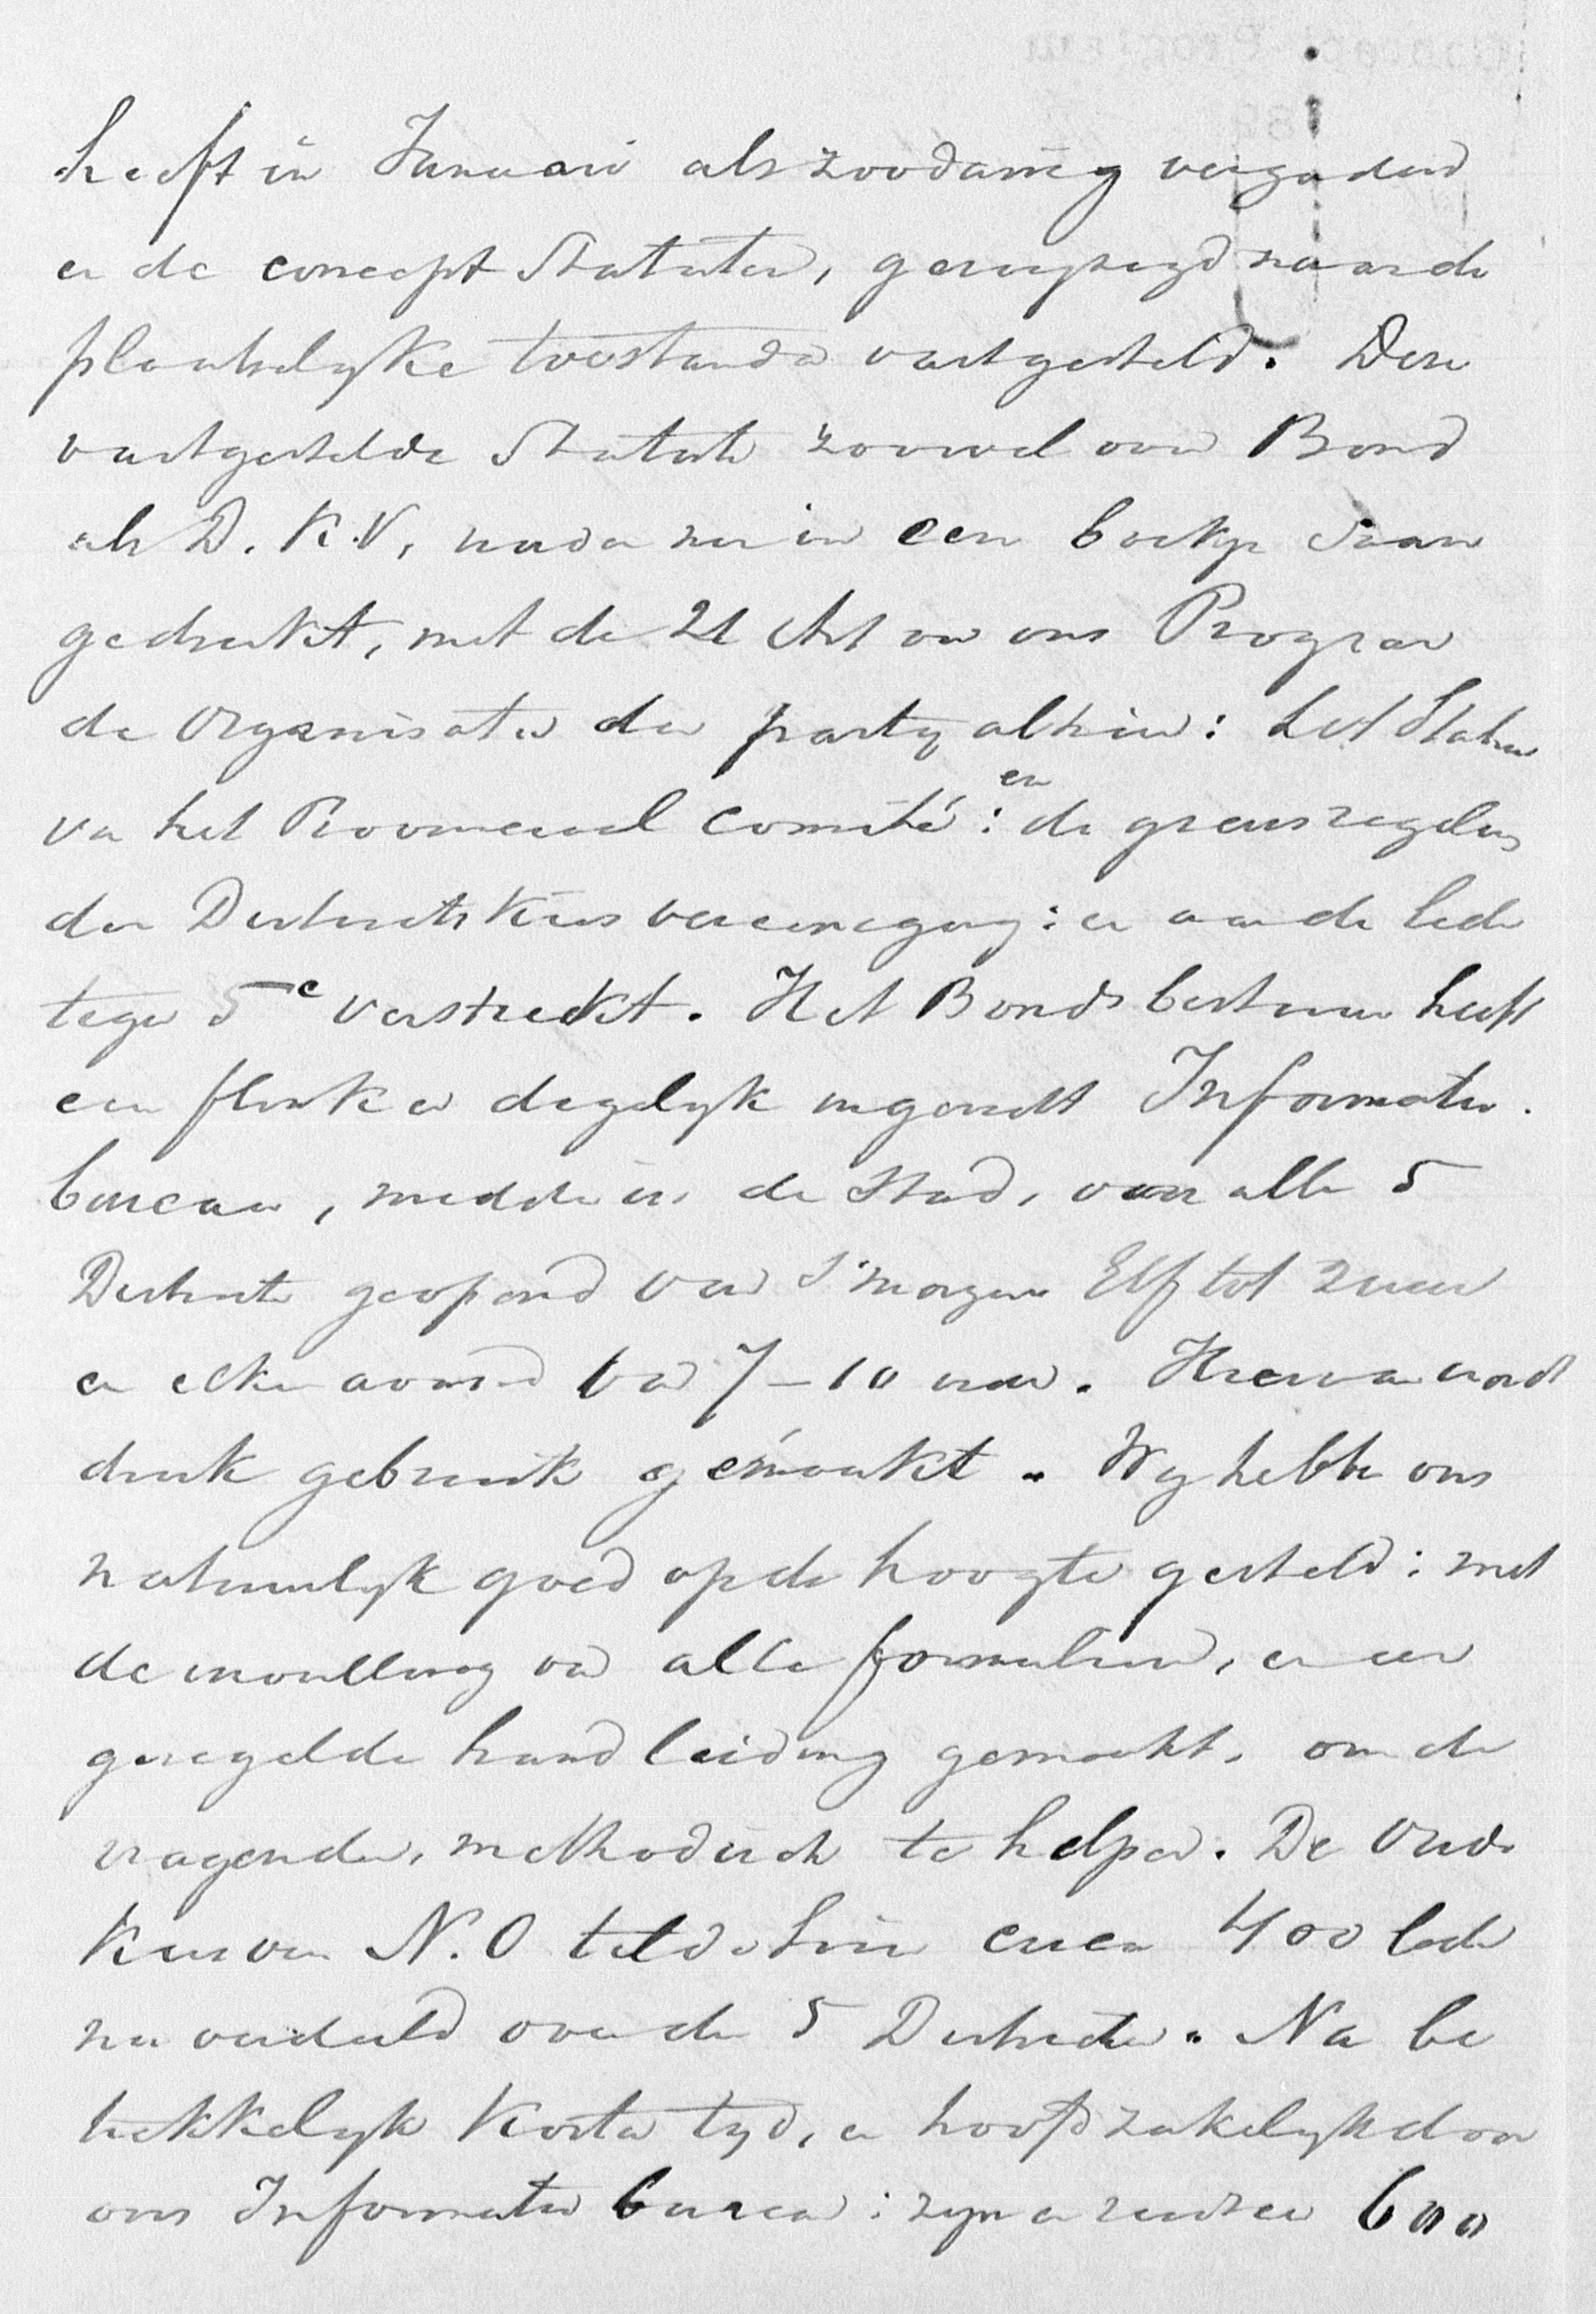 heeft in Januari als zoodanig vergaderd
en de concept Statuten, gewyzigd naar de
plaatselyke toestanden vastgesteld. Deze
vastgestelde Statuten zoowel van Bond
als D. K. V, worden nu in een boekje saam
gedrukt, met de 21 Art van ons Program
de Organisatie der party alhier: het Statuu
van het Provinciaal Comité: en de grensregeling
der Districts Kiesvereeniging: en aan de leden
tegen 5c verstrekt. Het Bondsbestuur heeft
een flink en degelyk ingericht Informatie
bureau, midden in de Stad, voor alle 5
Districten geopend van 's morgens Elf tot 2 uur
en elken avond van 7-10 uur. Hiervan wordt
druk gebruik gemaakt. Wy hebben ons
natuurlyk goed op de hoogte gesteld: met
de invulling van alle formulieren, en een
geregelde handleiding gemaakt, om de
vragenden, methodisch te helpen. De Oude
Kiesver N.O telde hier even 400 leden
nu verdeeld over de 5 Districten. Na be
trekkelyk Korten tyd, en hoofdzakelyk door
ons Informatie bureau: zyn er reeds 600